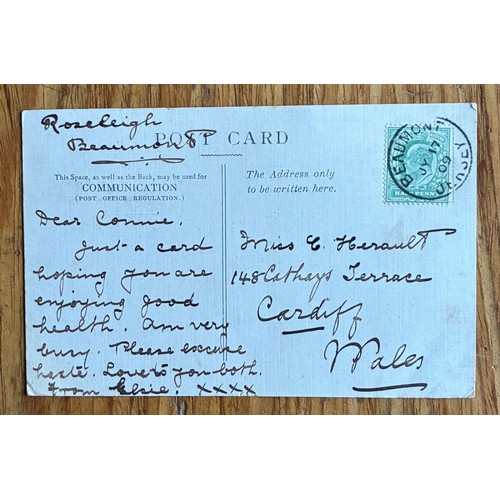 Roseleigh
Beaumont
POST CARD
This Space, as well as the Back, may be used for
COMMUNICATION
(POST OFFICE REGULATION.)
The Address only
to be written here.
BEAUMONT
JERSEY
JY 17
09
Dear Connie.
Just a card
hoping you are
enjoying good
health. Am very
busy. Please excuse
haste. Love to you both.
from Elsie. xxxx
Miss C. Herault
148 Cathays Terrace
Cardiff
Wales